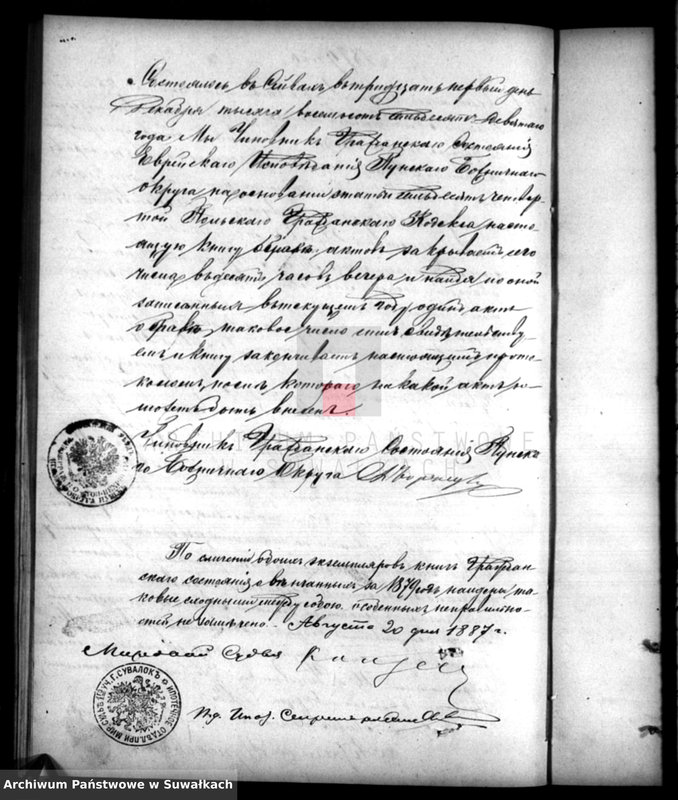 Состоялось въ Сейвахъ въ тридцать первый день
Декабря тысяча восемьсотъ семьдесятъ девятаго
года Мы Чиновникъ Гражданскаго Состоянія
Еврейскаго Исповѣданія Пунскаго Божничнаго
округа на основаніи статьи семьдесятъ четвер-
той Польскаго Гражданскаго Кодекса насто-
ящую книгу бракъ актовъ закрываетъ сего
числа въ десять часовъ вечера и найдя по оной
записанныхъ въ текущемъ году одинъ актъ
о бракѣ таковое число симъ свидѣтельству-
емъ и книгу заканчиваетъ настоящимъ прото-
коломъ, послѣ котораго никакой актъ не
можетъ быть внесенъ.
Чиновникъ Гражданскаго Состоянія Пунска-
го Божничнаго Округа
По сличеніи обоихъ экземпляровъ книгъ Граждан-
скаго состоянія о вѣнчанныхъ за 1879 годъ найдены та-
ковые сходными между собою, особенныхъ неправильно-
стей не замѣчено. Августа 20 дня 1887 г.
Мировой Судья
ИПОТЕЧНОЕ ОТДѢЛ. ПРИ МИР. СУДЬѢ Г. СУВАЛОКЪ
ARCHIWUM PAŃSTWOWE
W SUWAŁKACH
Archiwum Państwowe w Suwałkach